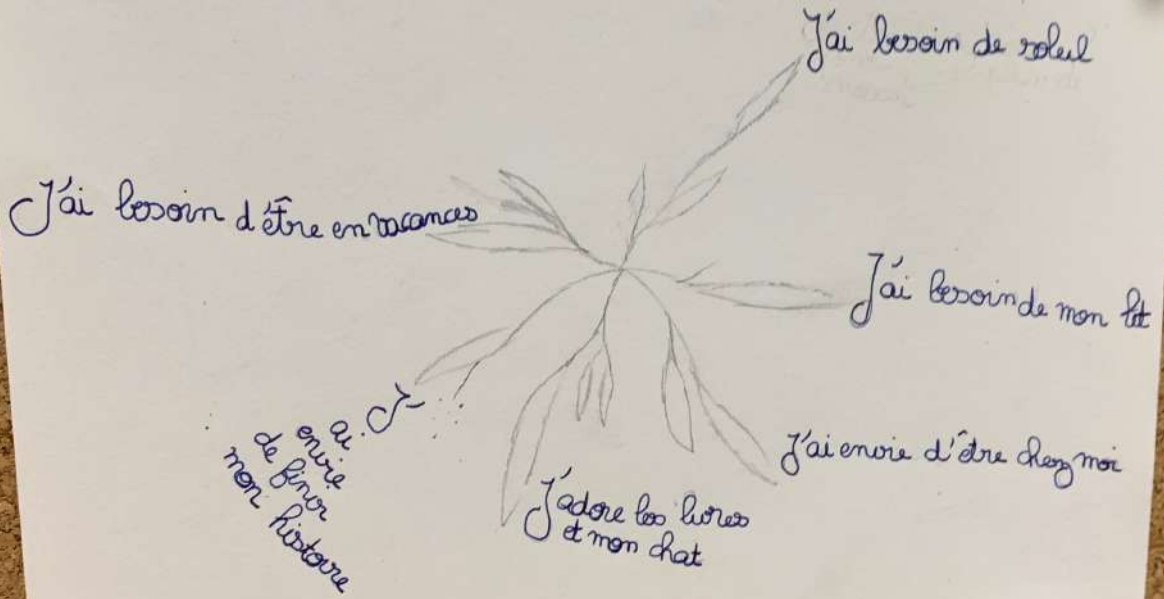 J'ai besoin de soleil
J'ai besoin d'être en vacances
J'ai besoin de mon lit
J'ai envie d'être chez moi
J'adore les livres
et mon chat
J'ai
envie
de finir
mon histoire